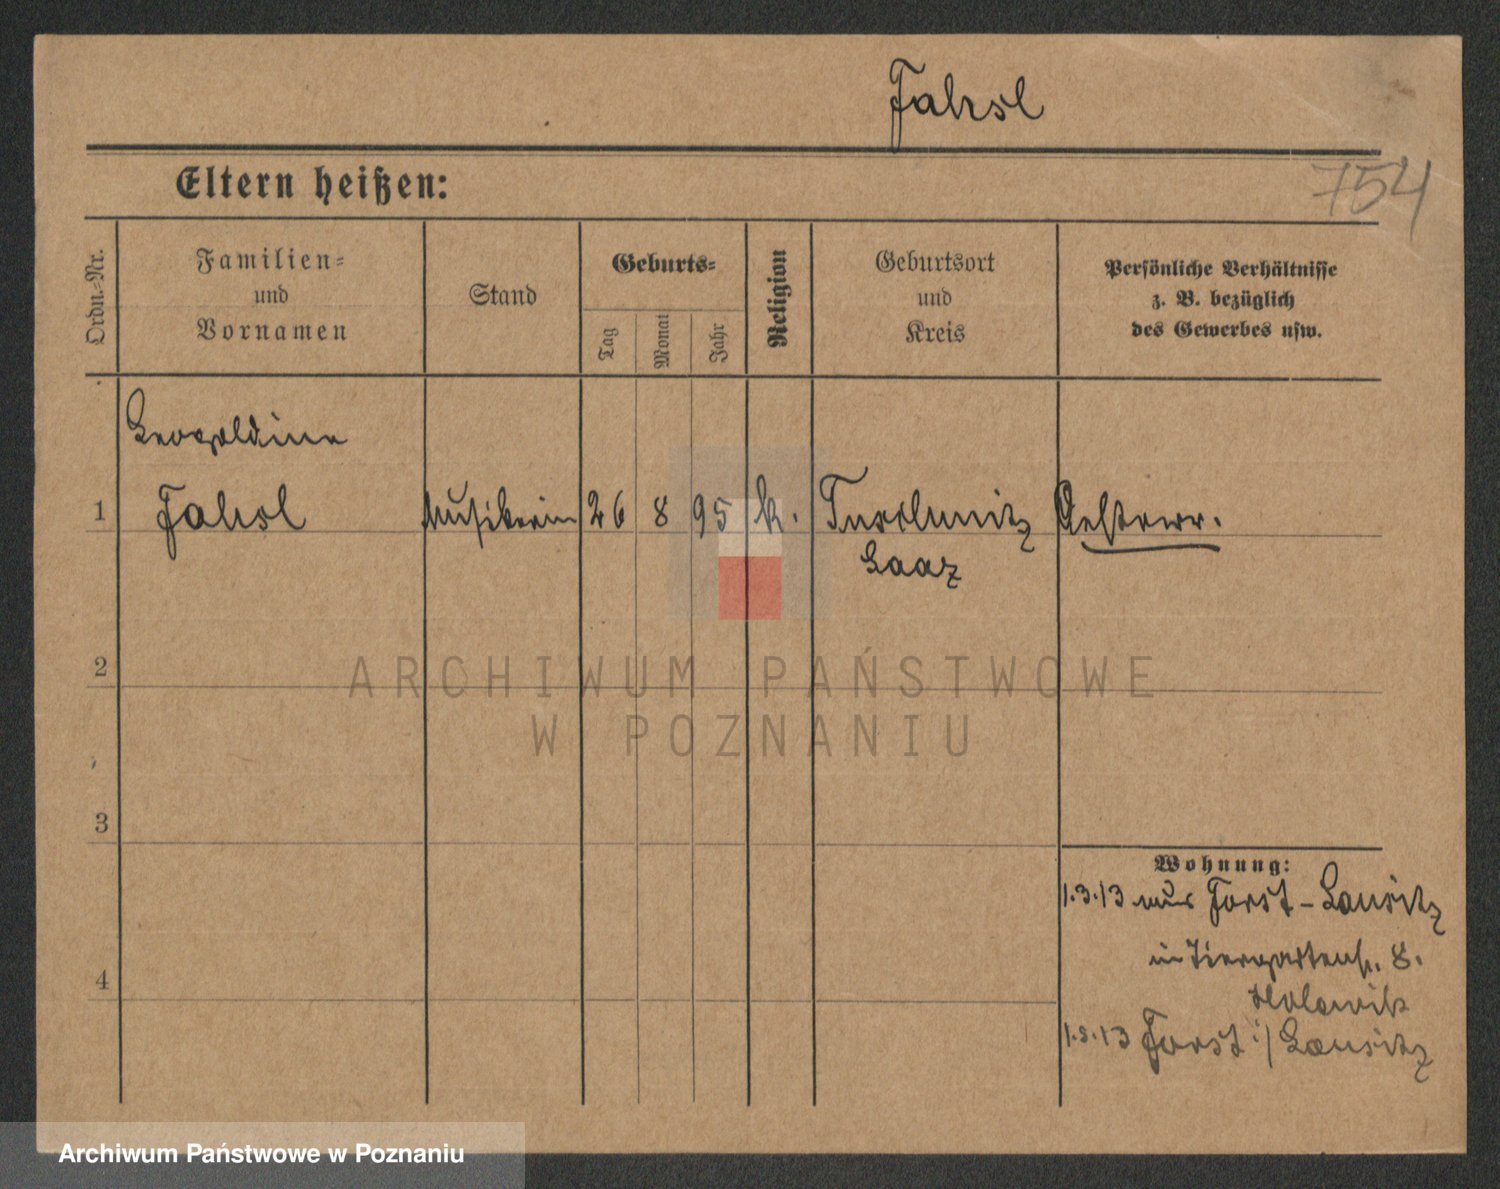 Fahsl
754
Eltern heißen:
Ordn.-Nr.
Familien-
und
Vornamen
Stand
Geburts-
Tag
Monat
Jahr
Religion
Geburtsort
und
Kreis
Persönliche Verhältnisse
z. B. bezüglich
des Gewerbes usw.
1
Leopoldine
Fahsl
Musikerin
26
8
95
k.
Saaz
Oesterr.
2
3
4
Wohnung:
1.3.13 aus Forst-Lausitz
in Tiergartenstr. 8.
Forst i/Lausitz
ARCHIWUM PAŃSTWOWE
W POZNANIU
Archiwum Państwowe w Poznaniu